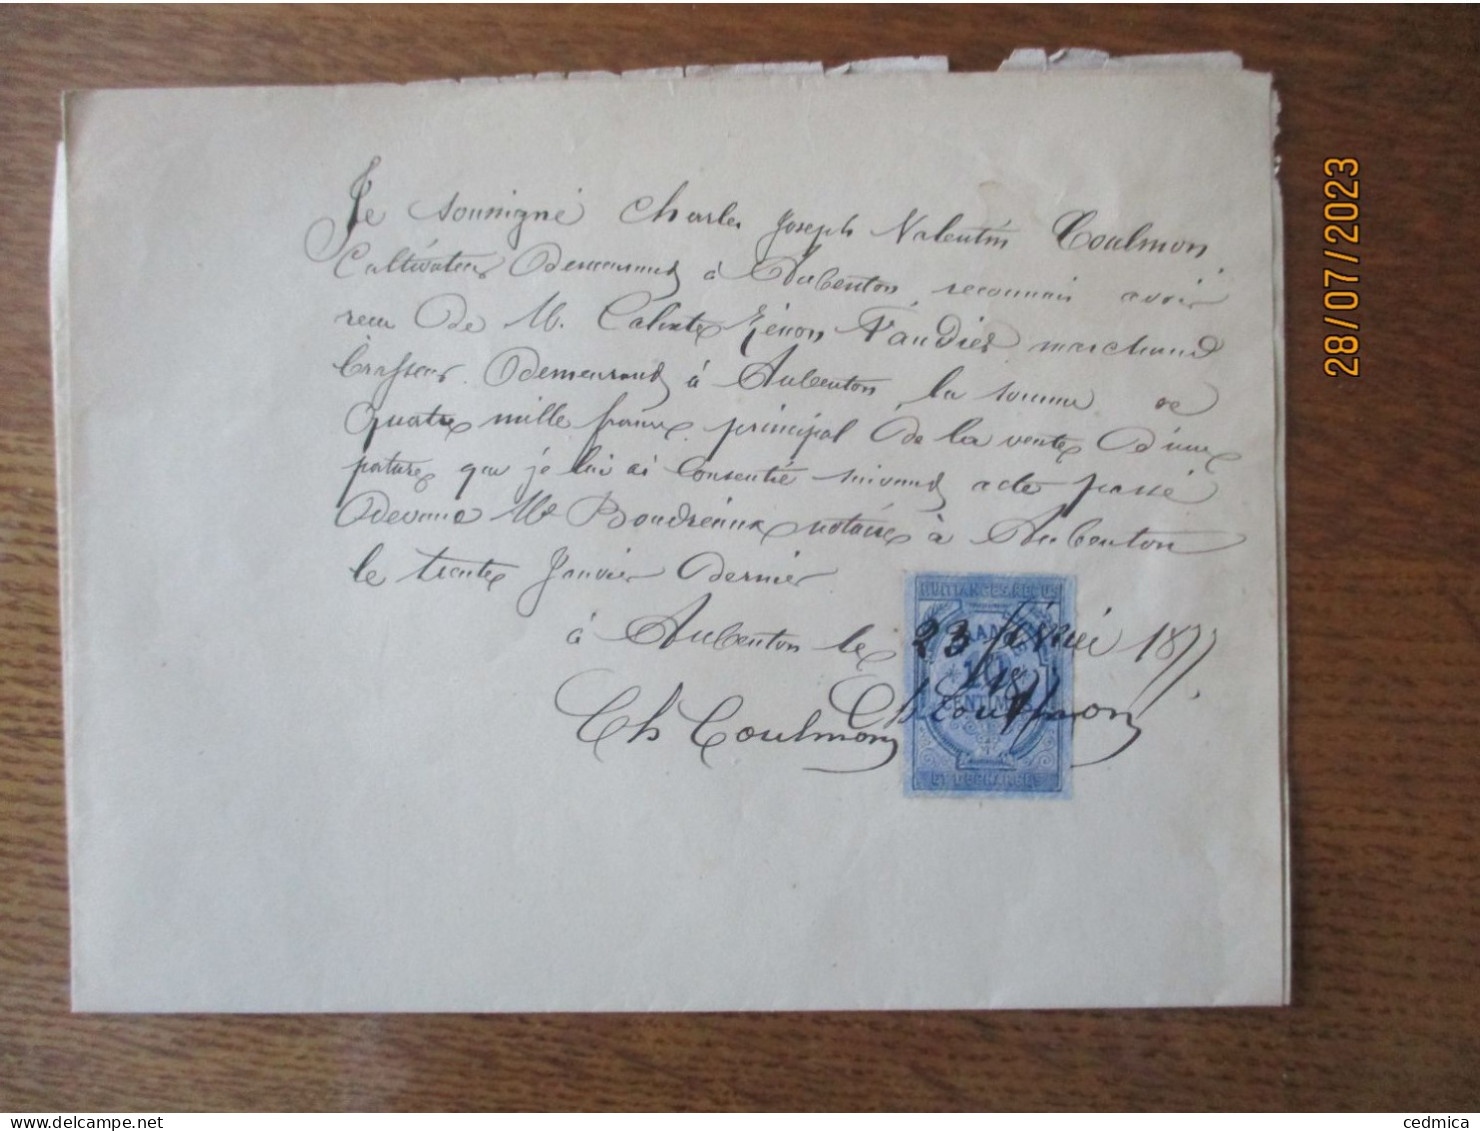 Je soussigné Charles Joseph Valentin Coulmon
Cultivateur Demeurant à Aubenton, reconnais avoir
recu De M. Calixte Zénon Vaudier marchand
brasseur Demeurant à Aubenton la somme de
quatre mille francs principal De la vente D'une
pature que je lui ai Consentie suivant acte passé
Devant Me Boudréaux notaire à Aubenton
le trente Janvier Dernier
à Aubenton le 23 février 1877
Ch Coulmon
Ch Coulmon
QUITTANCES, REÇUS
10
CENTIMES
ET DÉCHARGES
28/07/2023
cedmica